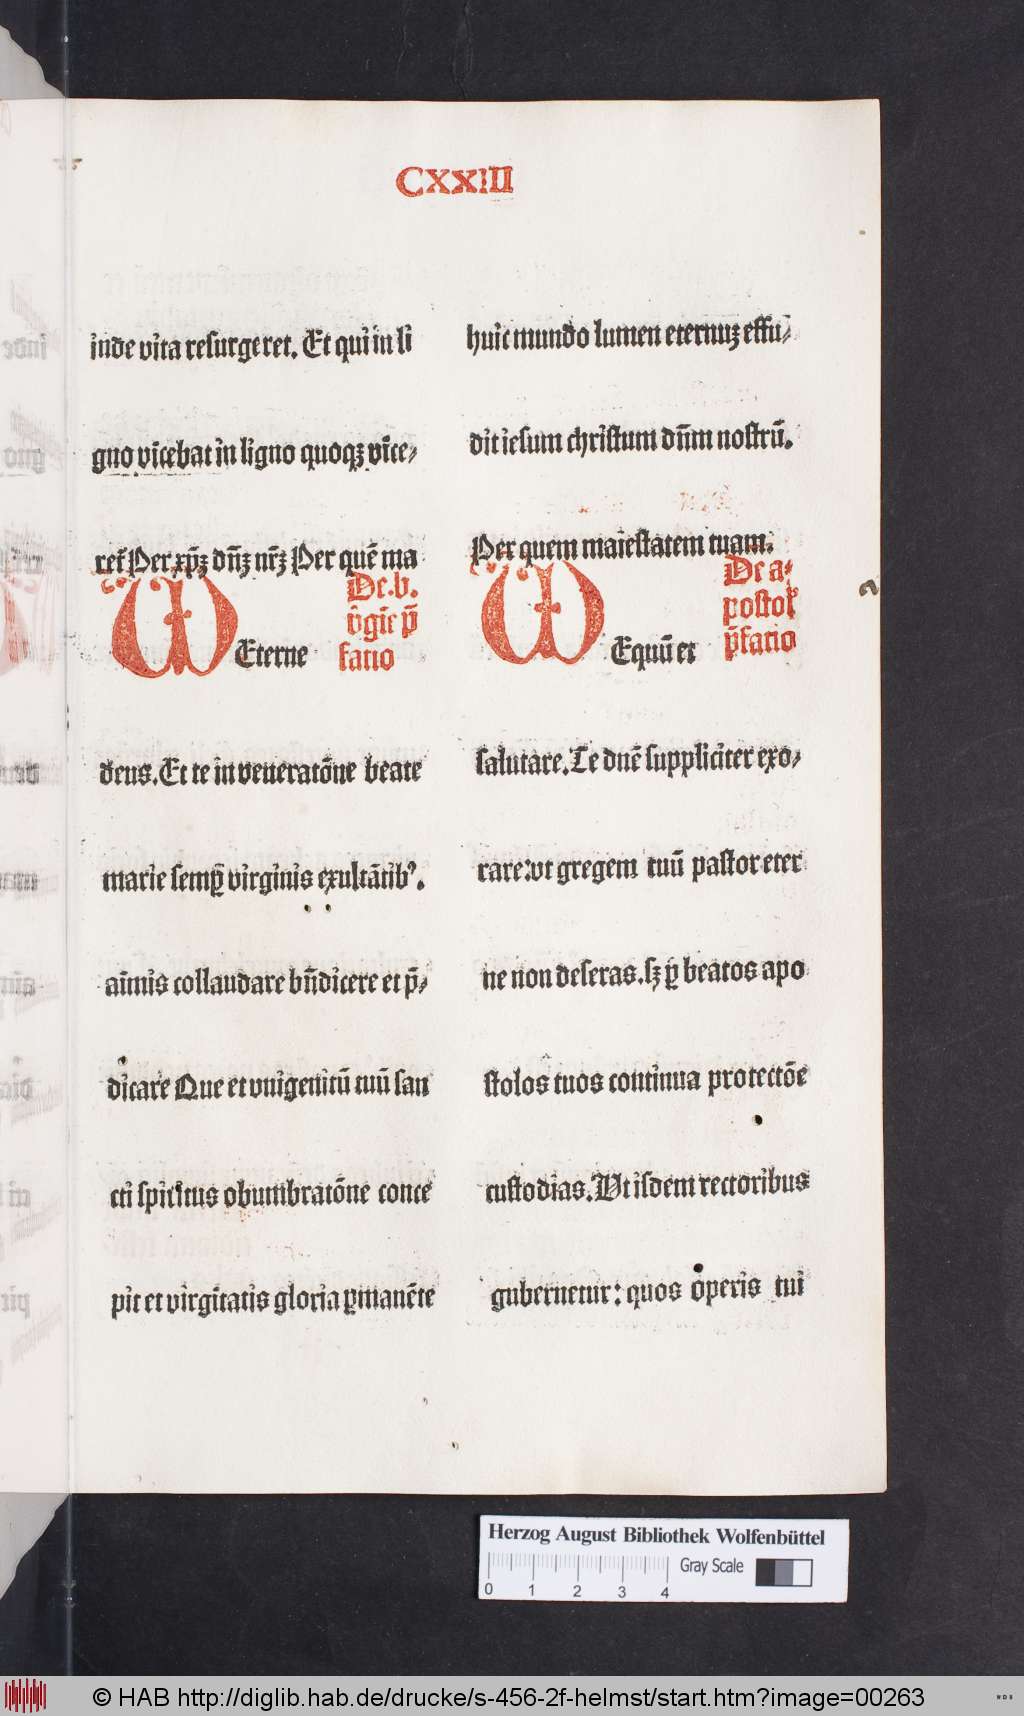 CXXIII
inde vita resurgeret. Et qui in li
gno vīcebat in ligno quoqꝫ vīce⸗
ret̄ Per xp̄ꝫ dn̄ꝫ nr̄ꝫ Per quē ma
De.b.
v̄gīe p̄
Eterne
fatio
deus. Et te in veneratōne beate
marie semꝑ virginis exultātibꝰ.
aīmis collaudare bn̄dicere et p̄⸗
dicare Que et vnigenitū tuū san
cti spiritus obumbratōne conce
pit et virgītatis gloria ꝑmanēte
huic mundo lumen eternuꝫ effu⸗
dit iesum christum dn̄m nostrū.
Per quem maiestatem tuam.
De a⸗
postol'
Equū et
p̄fatio
salutare. Te dnē suppliciter exo⸗
rare: vt gregem tuū pastor eter
ne non deseras. sꝫ ꝑ beatos apo
stolos tuos continua protectōe
custodias. Vt isdem rectoribus
gubernetur: quos operis tui
a
Herzog August Bibliothek Wolfenbüttel
Gray Scale
0 1 2 3 4
© HAB http://diglib.hab.de/drucke/s-456-2f-helmst/start.htm?image=00263